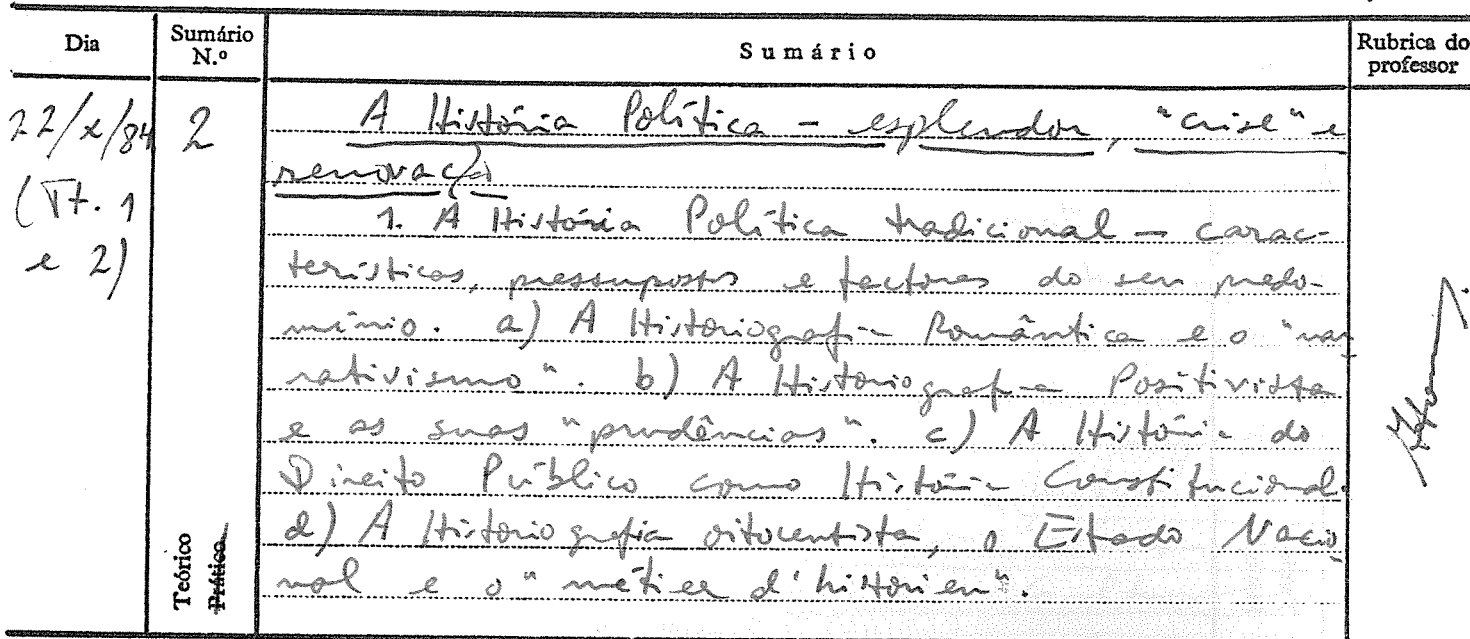 Dia Sumário N.º Sumário Rubrica do professor
22/X/84 2 A História Política – esplendor, "crise" e
renovação
(Tt. 1 1. A História Política tradicional – carac-
e 2) terísticas, pressupostos e factores do seu predo-
mínio. a) A Historiografia Romântica e o "nar-
rativismo". b) A Historiografia Positivista
e as suas "prudências". c) A História do
Direito Público como História Constitucional.
d) A Historiografia oitocentista, o Estado Nacio-
nal e o "métier d'historien".
Teórico
Prático